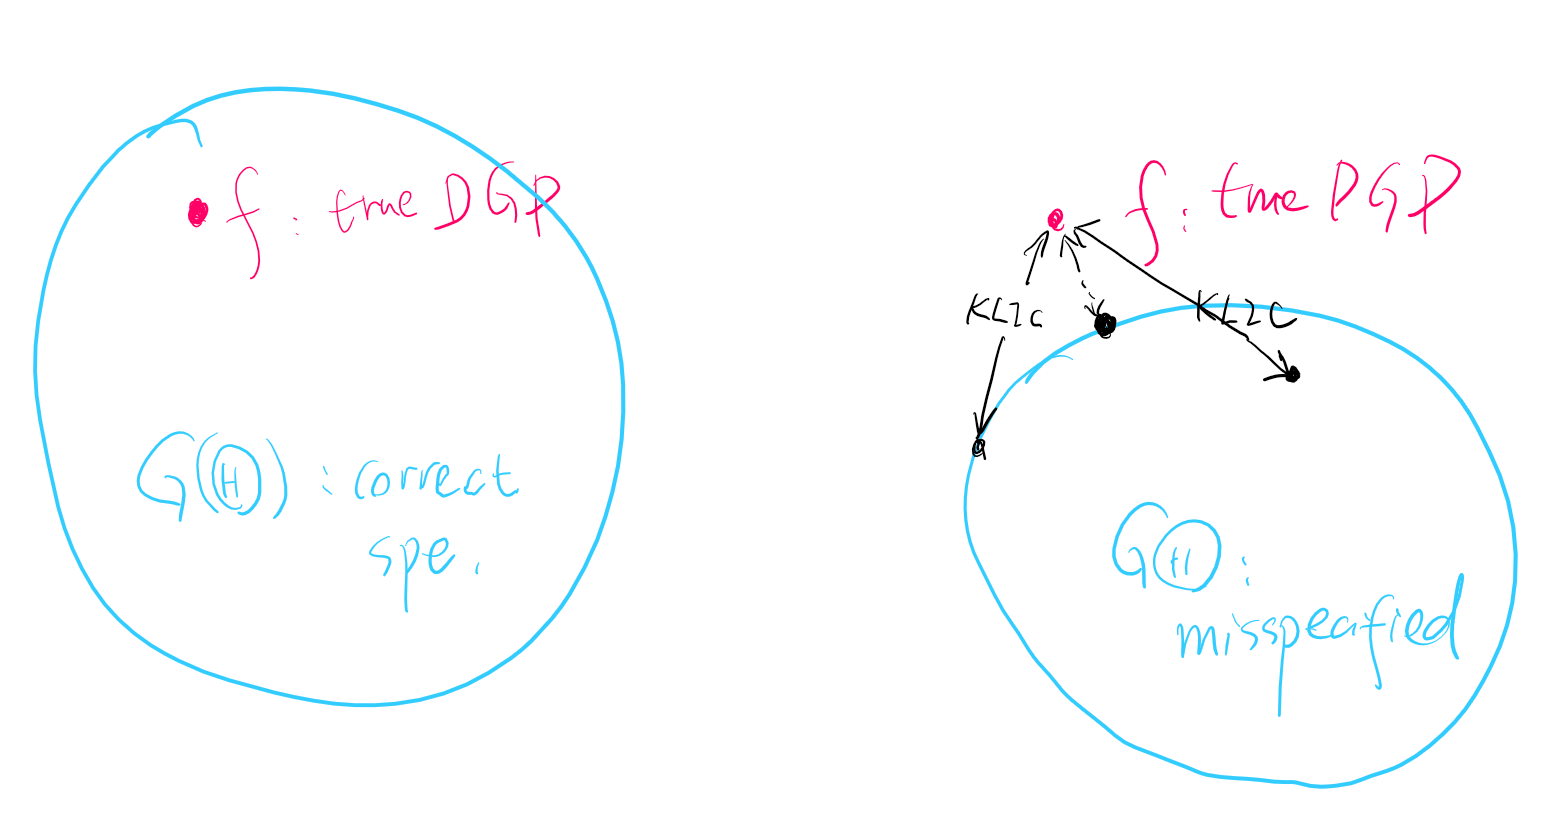 f : true DGP
G(Ⓗ) : correct
spe.
f : true DGP
KLIC
KLIC
GⒽ :
misspecified